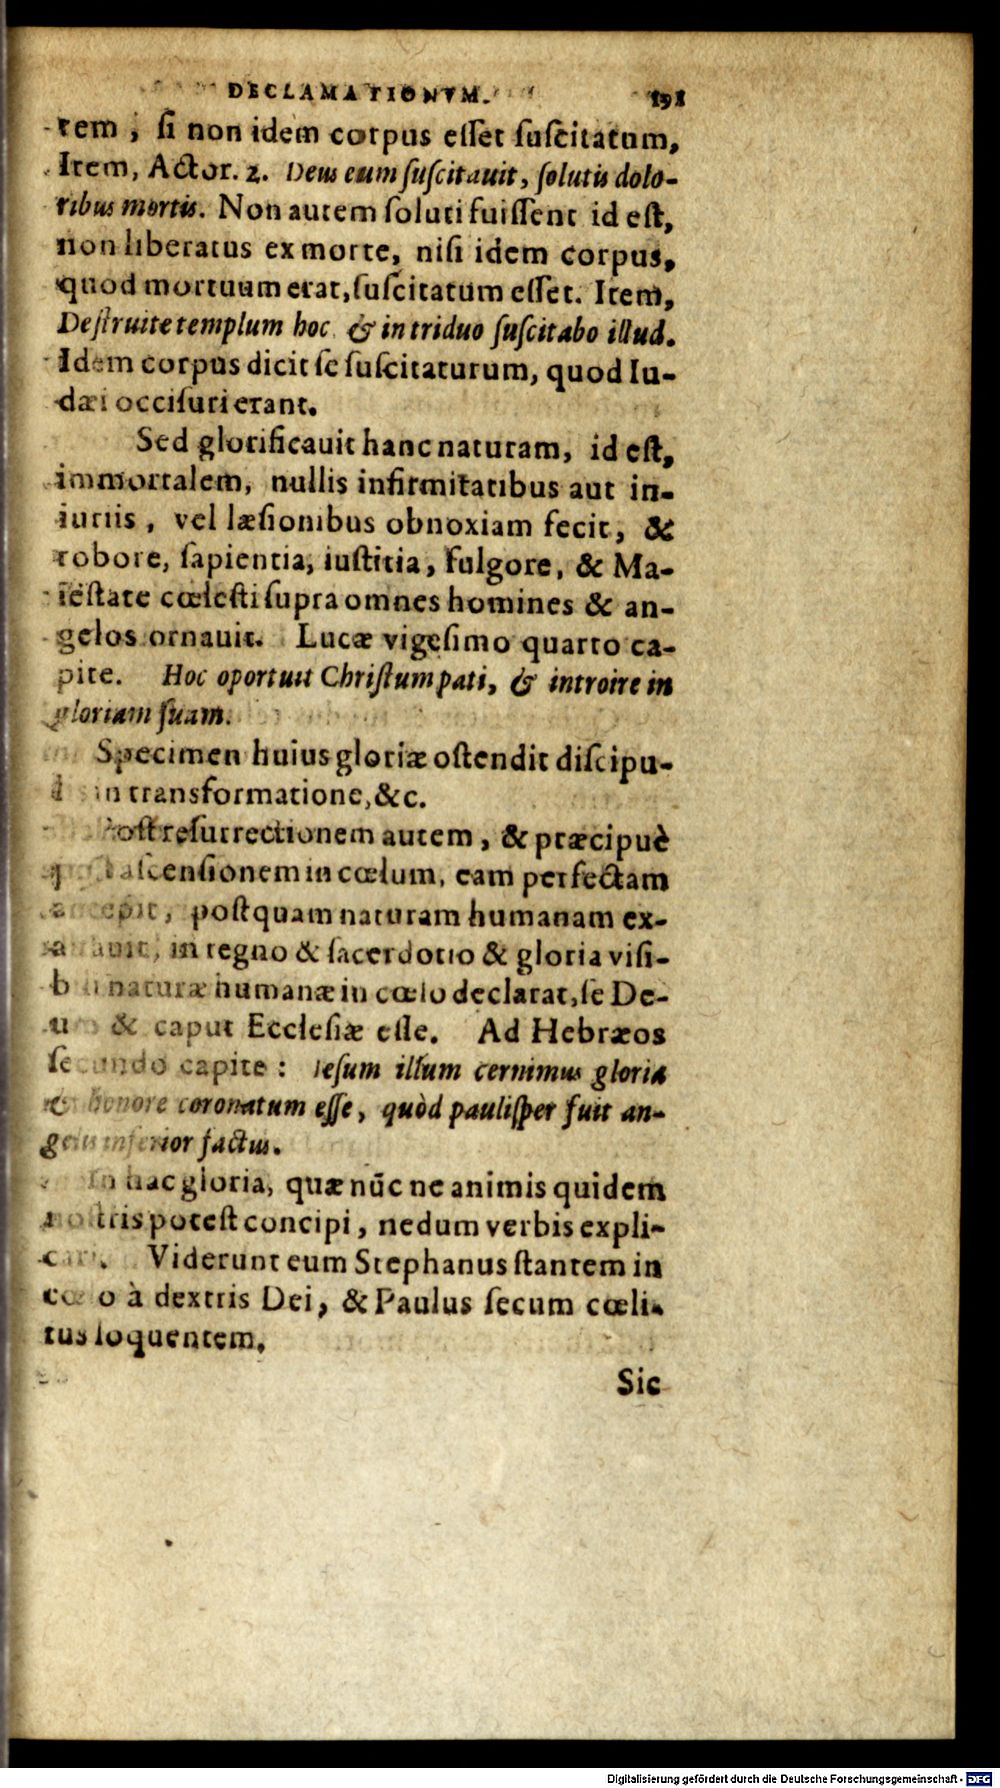 DECLAMATIONVM. 191
rem, ſi non idem corpus eſſet ſuſcitatum,
Item, Actor. 2. Deus eum ſuſcitauit, ſolutis dolo-
ribus mortis. Non autem ſoluti fuiſſent id eſt,
non liberatus ex morte, niſi idem corpus,
quod mortuum erat, ſuſcitatum eſſet. Item,
Deſtruite templum hoc & in triduo ſuſcitabo illud.
Idem corpus dicit ſe ſuſcitaturum, quod Iu-
dæi occiſuri erant.
Sed glorificauit hanc naturam, id eſt,
immortalem, nullis infirmitatibus aut in-
iuriis, vel læſionibus obnoxiam fecit, &
robore, ſapientia, iuſtitia, fulgore, & Ma-
ieſtate cœleſti ſupra omnes homines & an-
gelos ornauit. Lucæ vigeſimo quarto ca-
pite. Hoc oportuit Chriſtum pati, & introire in
gloriam ſuam.
Specimen huius gloriæ oſtendit diſcipu-
in transformatione, &c.
Poſt reſurrectionem autem, & præcipuè
aſcenſionem in cœlum, eam perfectam
accepit, poſtquam naturam humanam ex-
in regno & ſacerdotio & gloria viſi-
naturæ humanæ in cœlo declarat, ſe De-
um & caput Eccleſiæ eſſe. Ad Hebræos
ſecundo capite: Ieſum illum cernimus gloria
& honore coronatum eſſe, quòd pauliſper fuit an-
gelis inferior factus.
In hac gloria, quæ nūc ne animis quidem
noſtris poteſt concipi, nedum verbis expli-
cari. Viderunt eum Stephanus ſtantem in
cœlo à dextris Dei, & Paulus ſecum cœli-
tus loquentem.
Sic
Digitalisierung gefördert durch die Deutsche Forschungsgemeinschaft - DFG